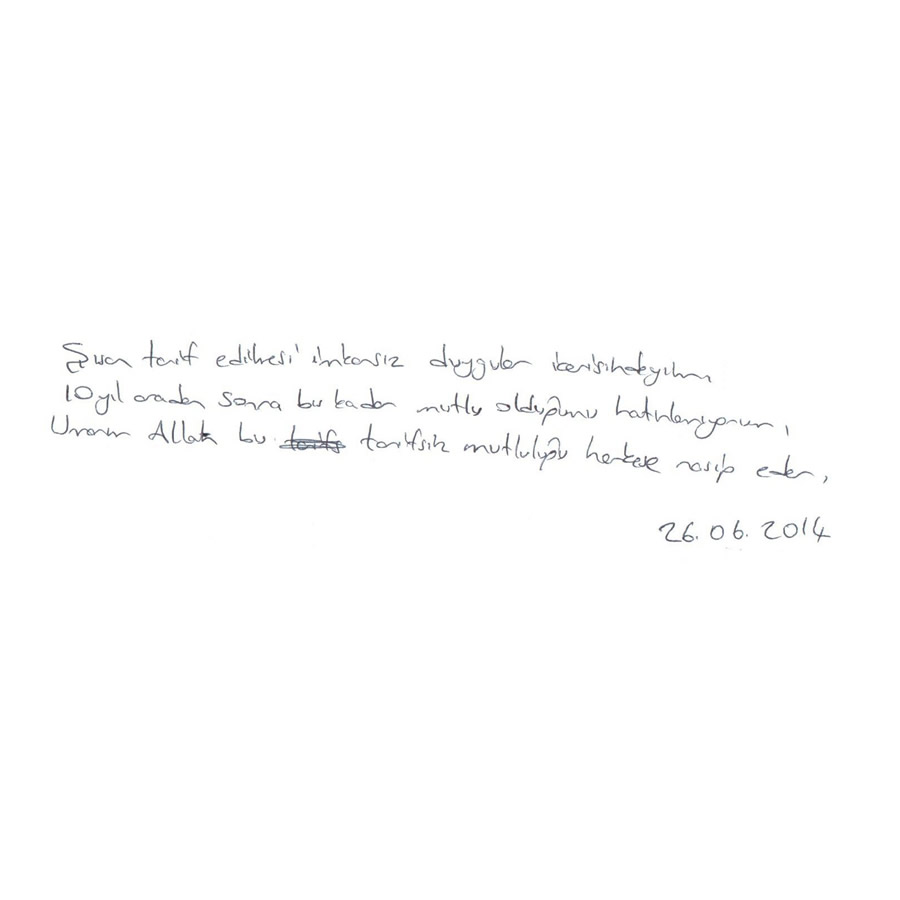 Şuan tarif edilmesi imkansız duygular içerisindeyim
10 yıl aradan sonra bu kadar mutlu olduğumu hatırlamıyorum,
Umarım Allah bu tarifsiz mutluluğu herkese nasip eder,
26.06.2014